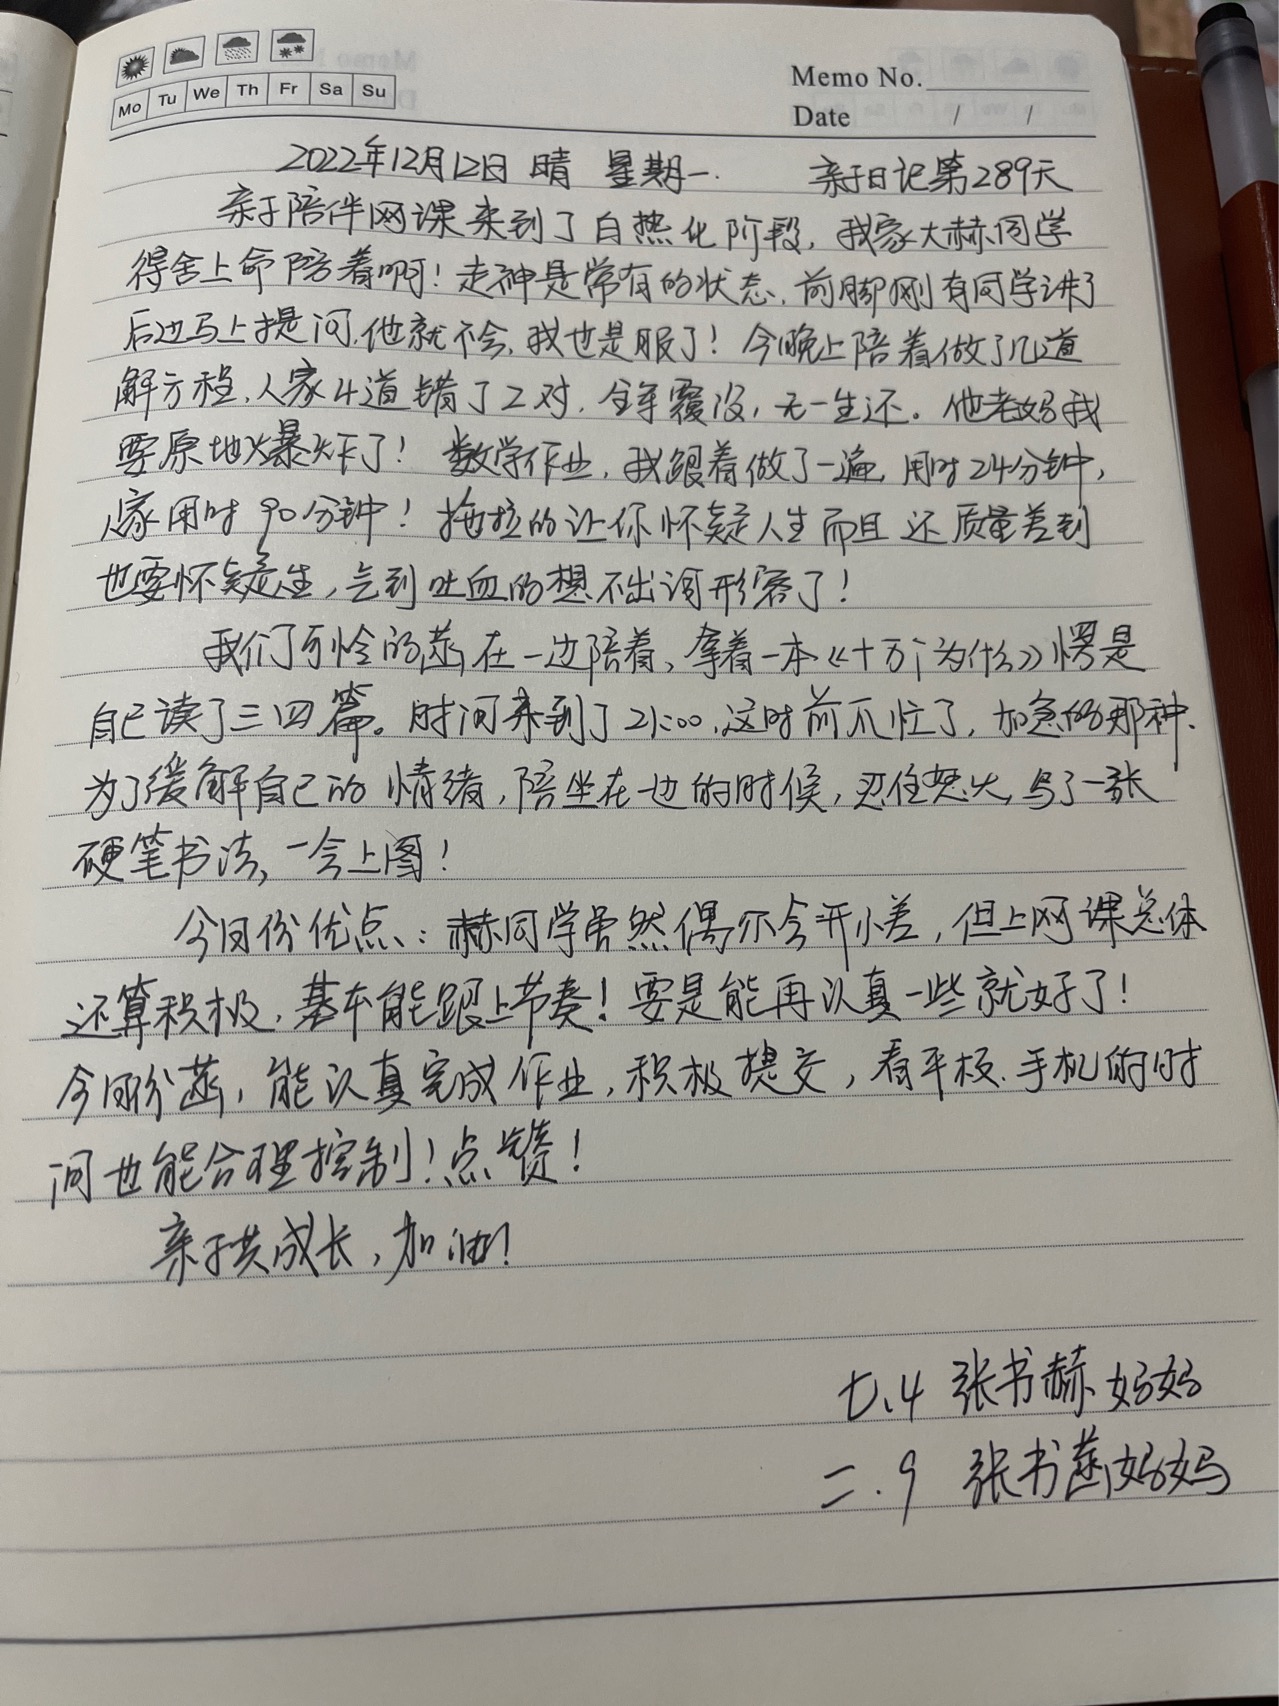 Mo Tu We Th Fr Sa Su
Memo No.
Date / /
2022年12月12日 晴 星期一. 亲子日记第289天
亲子陪伴网课来到了白热化阶段,我家大赫同学
得舍上命陪着啊!走神是常有的状态,前脚刚有同学讲了
后边马上提问,他就不会,我也是服了!今晚上陪着做了几道
解方程,人家4道错了2对,全军覆没,无一生还。他老妈我
要原地爆炸了!数学作业,我跟着做了一遍,用时24分钟,
人家用时90分钟!拖拉的让你怀疑人生而且还质量差到
也要怀疑人生,气到吐血的想不出词形容了!
我们可怜的菡,在一边陪着,拿着一本《十万个为什么》愣是
自己读了三四篇。时间来到了21:00,这时前爪忙了,加急的那种.
为了缓解自己的情绪,陪坐在一边的时候,忍住怒火,写了一张
硬笔书法,一会上图!
今日份优点:赫同学虽然偶尔会开小差,但上网课总体
还算积极,基本能跟上节奏!要是能再认真一些就好了!
今日份菡,能认真完成作业,积极提交,看平板、手机的时
间也能合理控制!点赞!
亲子共成长,加油!
七.4 张书赫妈妈
二.9 张书菡妈妈